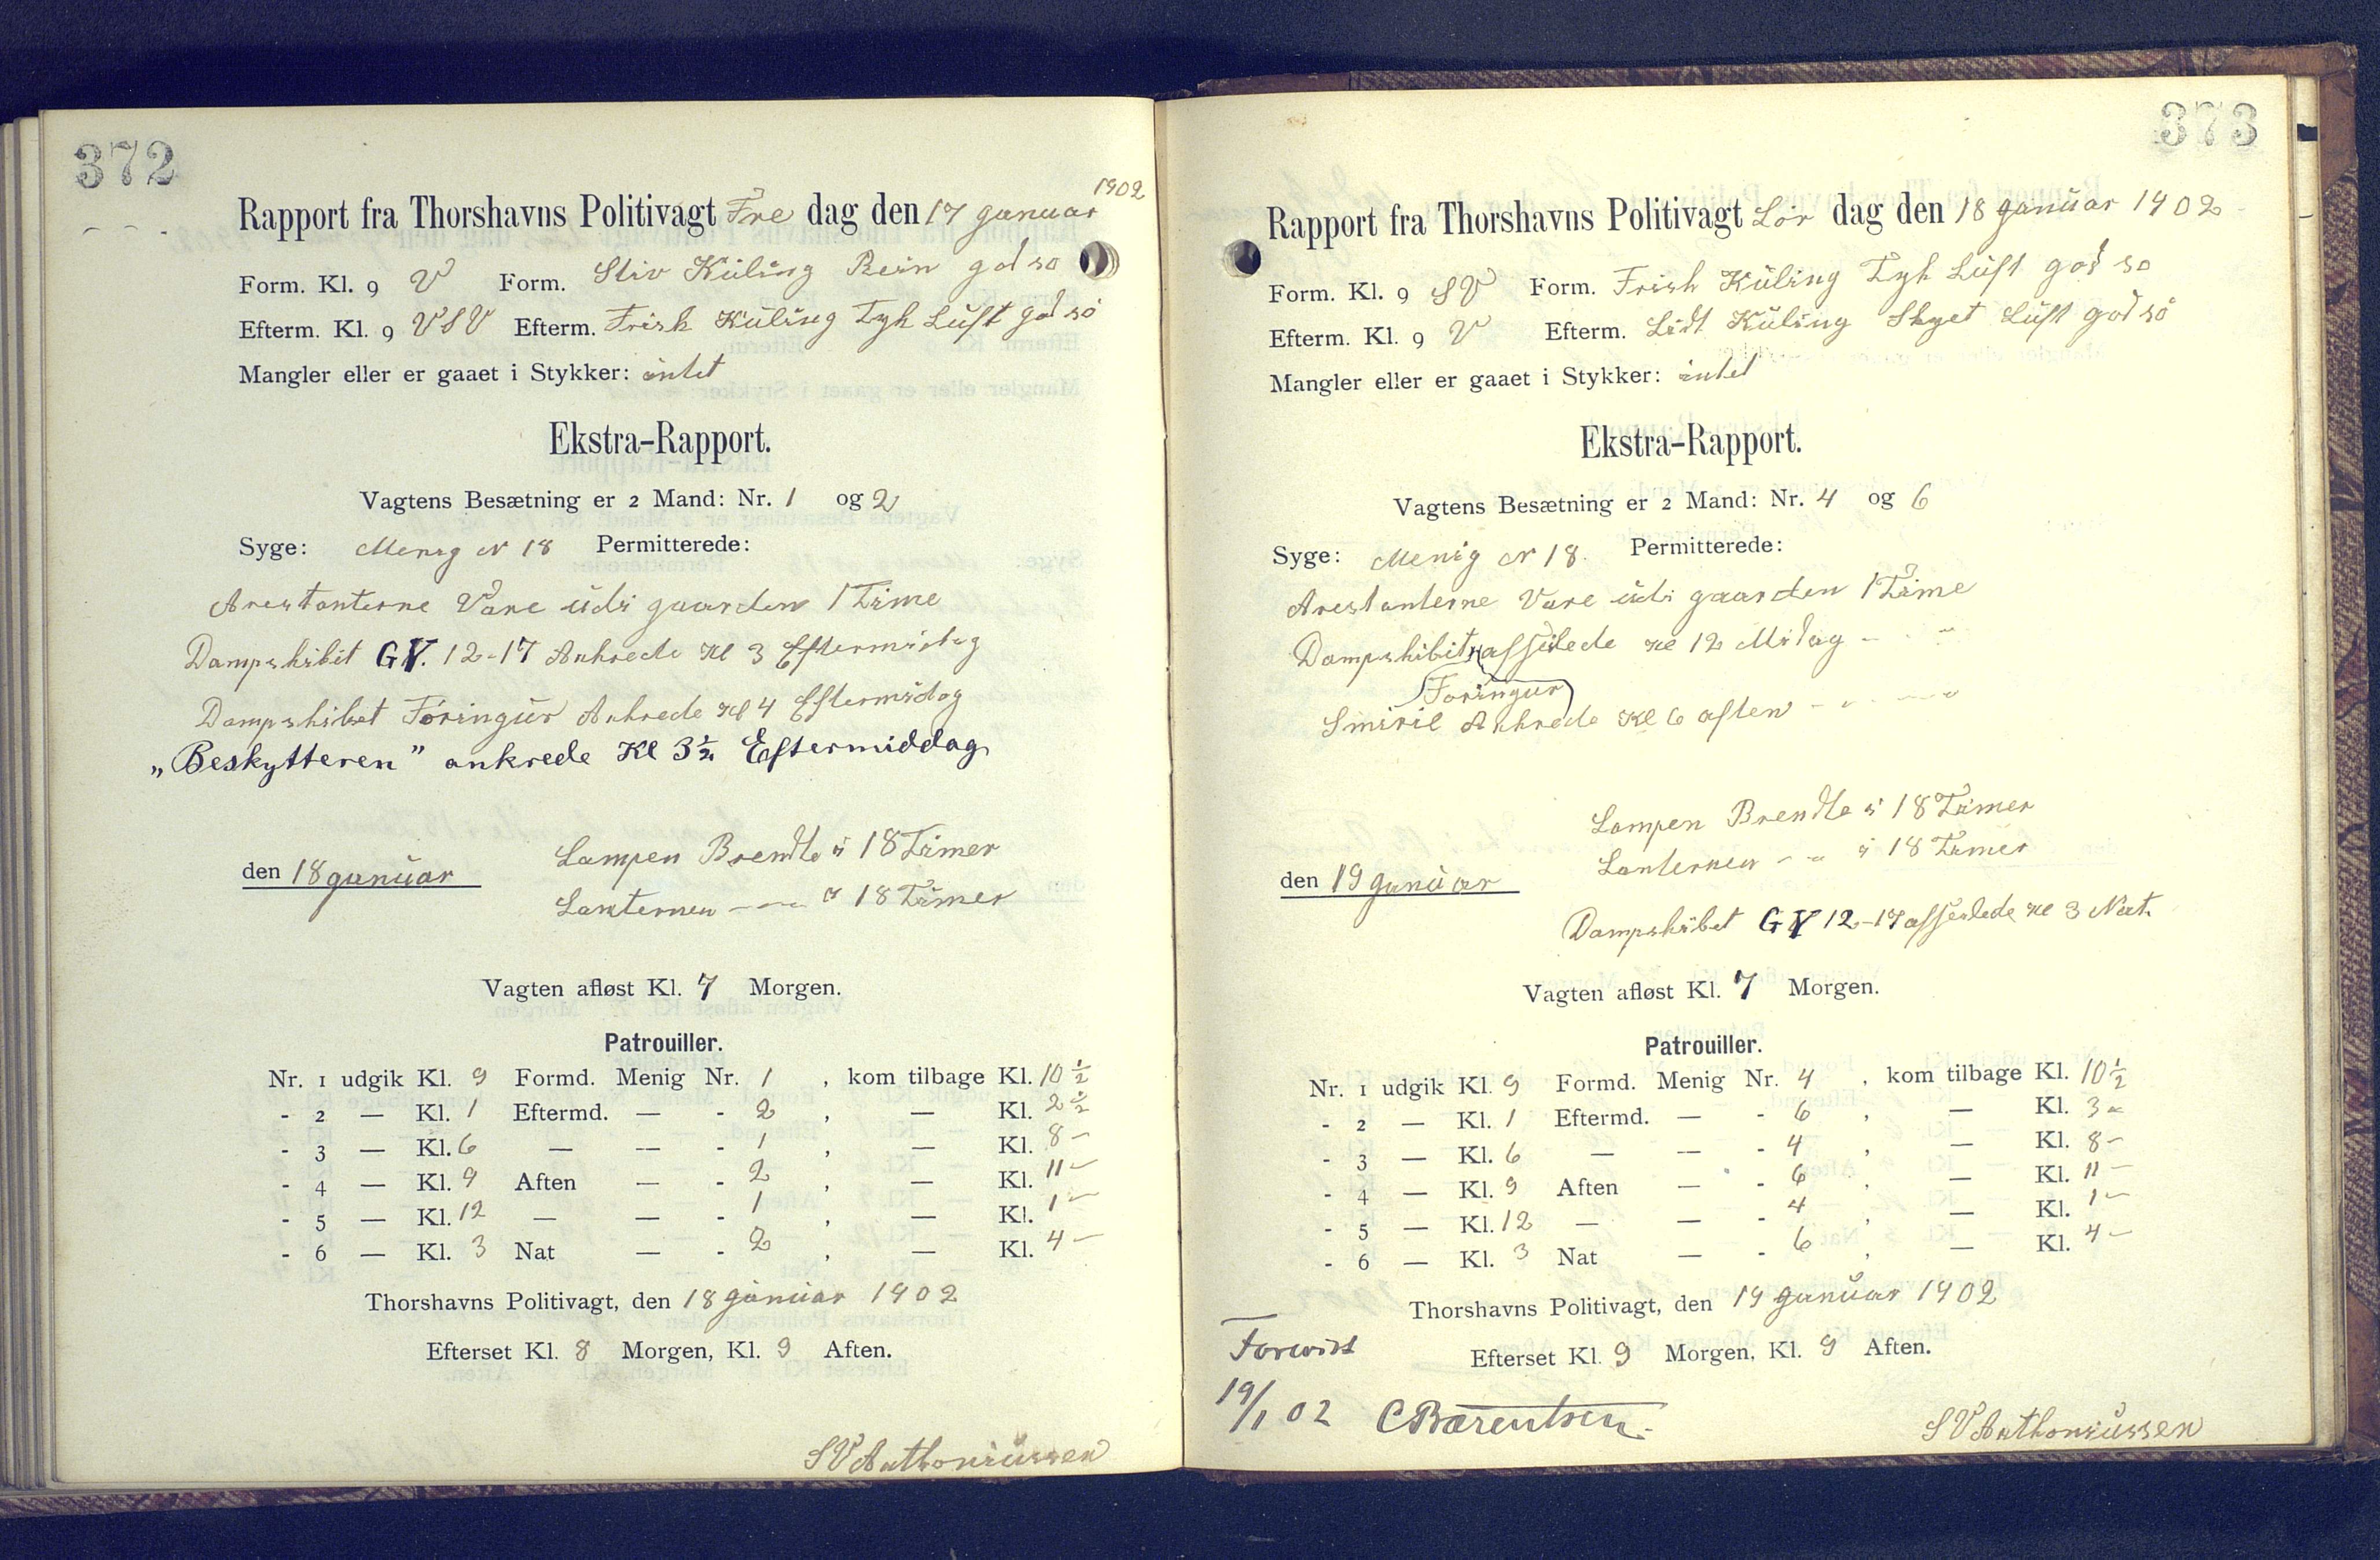 372
Rapport fra Thorshavns Politivagt Fre dag den 17 januar 1902
Form. Kl. 9 V Form. Stiv Küling Rein god so
Efterm. Kl. 9 VSV Efterm. Frisk Küling Tyk Lüft god so
Mangler eller er gaaet i Stykker: intet
Ekstra-Rapport.
Vagtens Besætning er 2 Mand: Nr. 1 og 2
Syge: Menig N 18 Permitterede:
Arestanterne Vare üdi gaarden 1 Time
Dampskibit GV. 12-17 Ankrede Kl 3 Eftermidag
Dampskibet Föringür Ankrede Kl 4 Eftermidag
„Beskytteren” ankrede Kl 3½ Eftermiddag
Lampen Brendte i 18 Timer
den 18 januar
Lanternen — „ i 18 Timer
Vagten afløst Kl. 7 Morgen.
Patrouiller.
Nr. 1 udgik Kl. 9 Formd. Menig Nr. 1 , kom tilbage Kl. 10½
- 2 — Kl. 1 Eftermd. — - 2 , — Kl. 2½
- 3 — Kl. 6 — — - 1 , — Kl. 8 -
- 4 — Kl. 9 Aften — - 2 , — Kl. 11 -
- 5 — Kl. 12 — — - 1 , — Kl. 1 -
- 6 — Kl. 3 Nat — - 2 , — Kl. 4 -
Thorshavns Politivagt, den 18 januar 1902
Efterset Kl. 8 Morgen, Kl. 9 Aften.
SV Anthoniüssen
373
Rapport fra Thorshavns Politivagt Lör dag den 18 januar 1902
Form. Kl. 9 SV Form. Frisk Küling Tyk Lüft god so
Efterm. Kl. 9 V Efterm. Lidt Küling Skyet Lüft god so
Mangler eller er gaaet i Stykker: intet
Ekstra-Rapport.
Vagtens Besætning er 2 Mand: Nr. 4 og 6
Syge: Menig N 18. Permitterede:
Arestanterne Vare üdi gaarden 1 Time
Dampskibit afseilede Kl 12 Midag
Foringur
Smiril Ankrede Kl 6 aften
Lampen Brendte i 18 Timer
Lanternen - „ i 18 Timer
den 19 januar
Dampskibet GV 12-17 afseilede Kl 3 Nat.
Vagten afløst Kl. 7 Morgen.
Patrouiller.
Nr. 1 udgik Kl. 9 Formd. Menig Nr. 4 , kom tilbage Kl. 10½
- 2 — Kl. 1 Eftermd. — - 6 , — Kl. 3 -
- 3 — Kl. 6 — — - 4 , — Kl. 8 -
- 4 — Kl. 9 Aften — - 6 , — Kl. 11 -
- 5 — Kl. 12 — — - 4 , — Kl. 1 -
- 6 — Kl. 3 Nat — - 6 , — Kl. 4 -
Thorshavns Politivagt, den 19 januar 1902
Forevist
Efterset Kl. 9 Morgen, Kl. 9 Aften.
19/1 02 CBærentsen.
SV Anthoniüssen